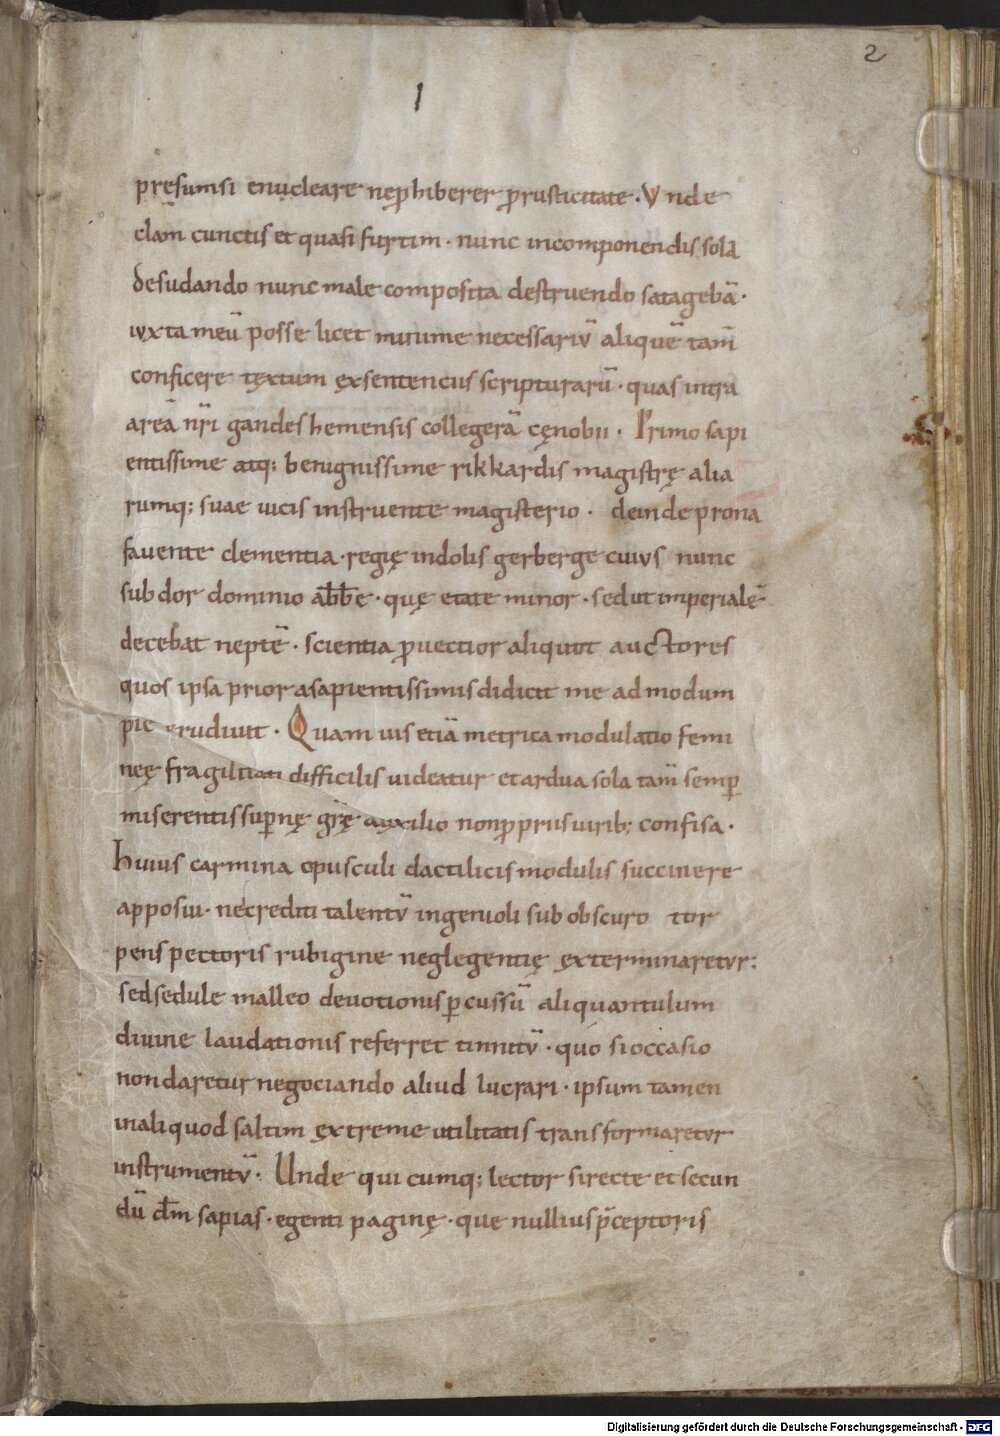 2
1
pręsumsi enucleare nep̄hiberer p̄rusticitate · Vnde
clam cunctis et quasi furtim · nunc incomponendis sola
desudando nunc male composita destruendo satagebā ·
iuxta meū posse licet minime necessariū aliquē tam̄
conficere tęxtum ęxsentenciis scripturarū · quas intra
areā nr̄i gandeshemensis collegerā cęnobii · Primo sapi
entissime atq; benignissime rikkardis magistrę alia
rumq; suae vicis instruente magisterio · deinde prona
favente clementia · regię indolis gerberge cuius nunc
subdor dominio abb̄e · quę etate minor · sed ut imperialē
decebat neptē · scientia p̄uectior aliquot auctores
quos ipsa prior asapientissimis didicit me admodum
pie erudiuit · Quam uis etiā metrica modulatio femi
neę fragilitati difficilis uideatur et ardua sola tam̄ semp̄
miserentis sup̄nę gr̄ę auxilio non p̄prus uirib; confisa ·
Huius carmina opusculi dactilicis modulis succinere
apposui · ne crediti talentū ingenioli sub obscuro tor
pens pectoris rubigine neglegentię ęxterminaretur :
sed sedule malleo devotionis p̄cussū aliquantulum
diuine laudationis referret tinnitū · quo si occasio
non daretur negociando aliud lucrari · ipsum tamen
in aliquod saltim ęxtreme utilitatis transformaretur
instrumentū · Unde qui cumq; lector si recte et secun
dū dm̄ sapias · egenti paginę · que nullius p̄ceptoris
Digitalisierung gefördert durch die Deutsche Forschungsgemeinschaft - DFG